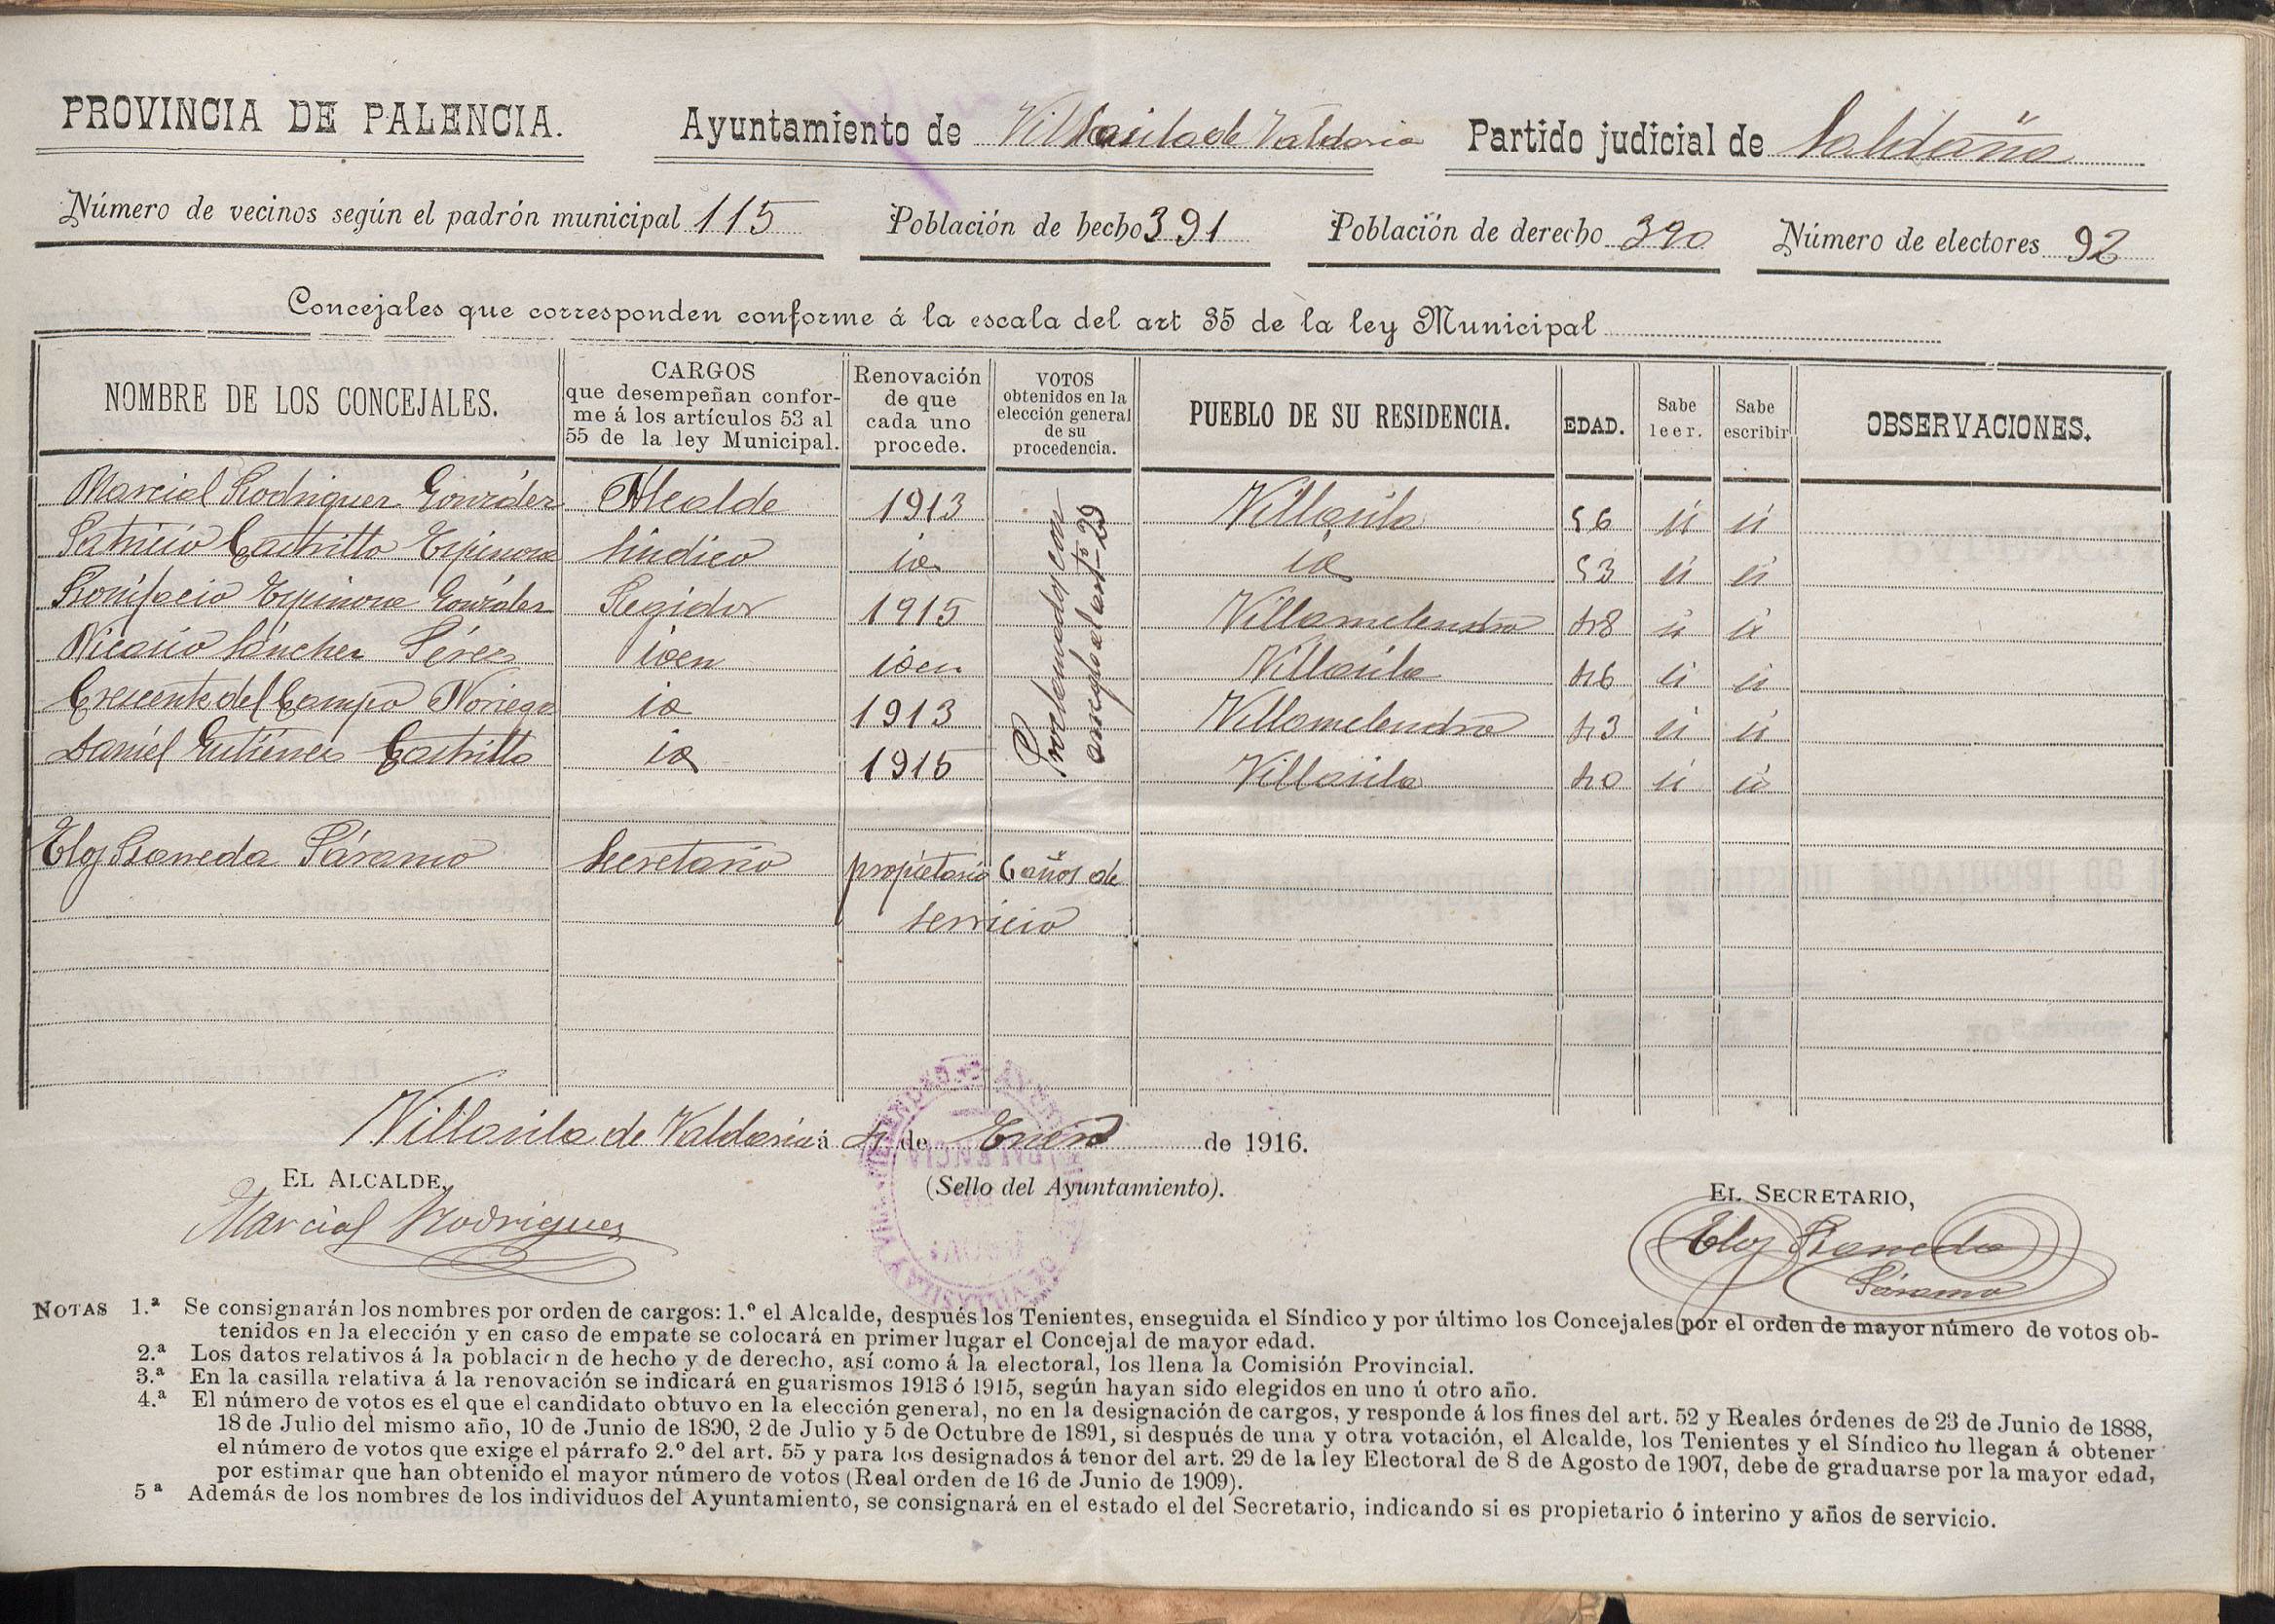 PROVINCIA DE PALENCIA. Ayuntamiento de Villasila de Valdavia Partido judicial de Saldaña
Número de vecinos según el padrón municipal 115 Población de hecho 391 Población de derecho 390 Número de electores 92
Concejales que corresponden conforme á la escala del art 35 de la ley Municipal
NOMBRE DE LOS CONCEJALES. CARGOS que desempeñan confor-me á los artículos 53 al 55 de la ley Municipal. Renovación de que cada uno procede. VOTOS obtenidos en la elección general de su procedencia. PUEBLO DE SU RESIDENCIA. EDAD. Sabe leer. Sabe escribir OBSERVACIONES.
Marcial Rodriguez González Alcalde 1913 Villasila 56 si si
Patricio Castrillo Espinosa Sindico id 53 si si
Bonifacio Espinosa González Regidor 1915 Villamelendro 48 si si
Nicasio Sánchez Pérez iden iden Villasila 46 si si
Crescente del Campo Noriega id 1913 Villamelendro 43 si si
Daniel Gutiérrez Castrillo id 1915 Villasila 40 si si
Proclamados con arreglo al artº 29
Eloy Raneda Páramo Secretario propietario 6 años de
servicio
Villasila de Valdavia á 4 de Enero de 1916.
EL ALCALDE, (Sello del Ayuntamiento). EL SECRETARIO,
Marcial Rodriguez Eloy Raneda
Páramo
NOTAS 1.ª Se consignarán los nombres por orden de cargos: 1.º el Alcalde, después los Tenientes, enseguida el Síndico y por último los Concejales por el orden de mayor número de votos ob-
tenidos en la elección y en caso de empate se colocará en primer lugar el Concejal de mayor edad.
2.ª Los datos relativos á la población de hecho y de derecho, así como á la electoral, los llena la Comisión Provincial.
3.ª En la casilla relativa á la renovación se indicará en guarismos 1913 ó 1915, según hayan sido elegidos en uno ú otro año.
4.ª El número de votos es el que el candidato obtuvo en la elección general, no en la designación de cargos, y responde á los fines del art. 52 y Reales órdenes de 23 de Junio de 1888,
18 de Julio del mismo año, 10 de Junio de 1890, 2 de Julio y 5 de Octubre de 1891, si después de una y otra votación, el Alcalde, los Tenientes y el Síndico no llegan á obtener
el número de votos que exige el párrafo 2.º del art. 55 y para los designados á tenor del art. 29 de la ley Electoral de 8 de Agosto de 1907, debe de graduarse por la mayor edad,
por estimar que han obtenido el mayor número de votos (Real orden de 16 de Junio de 1909).
5ª Además de los nombres de los individuos del Ayuntamiento, se consignará en el estado el del Secretario, indicando si es propietario ó interino y años de servicio.